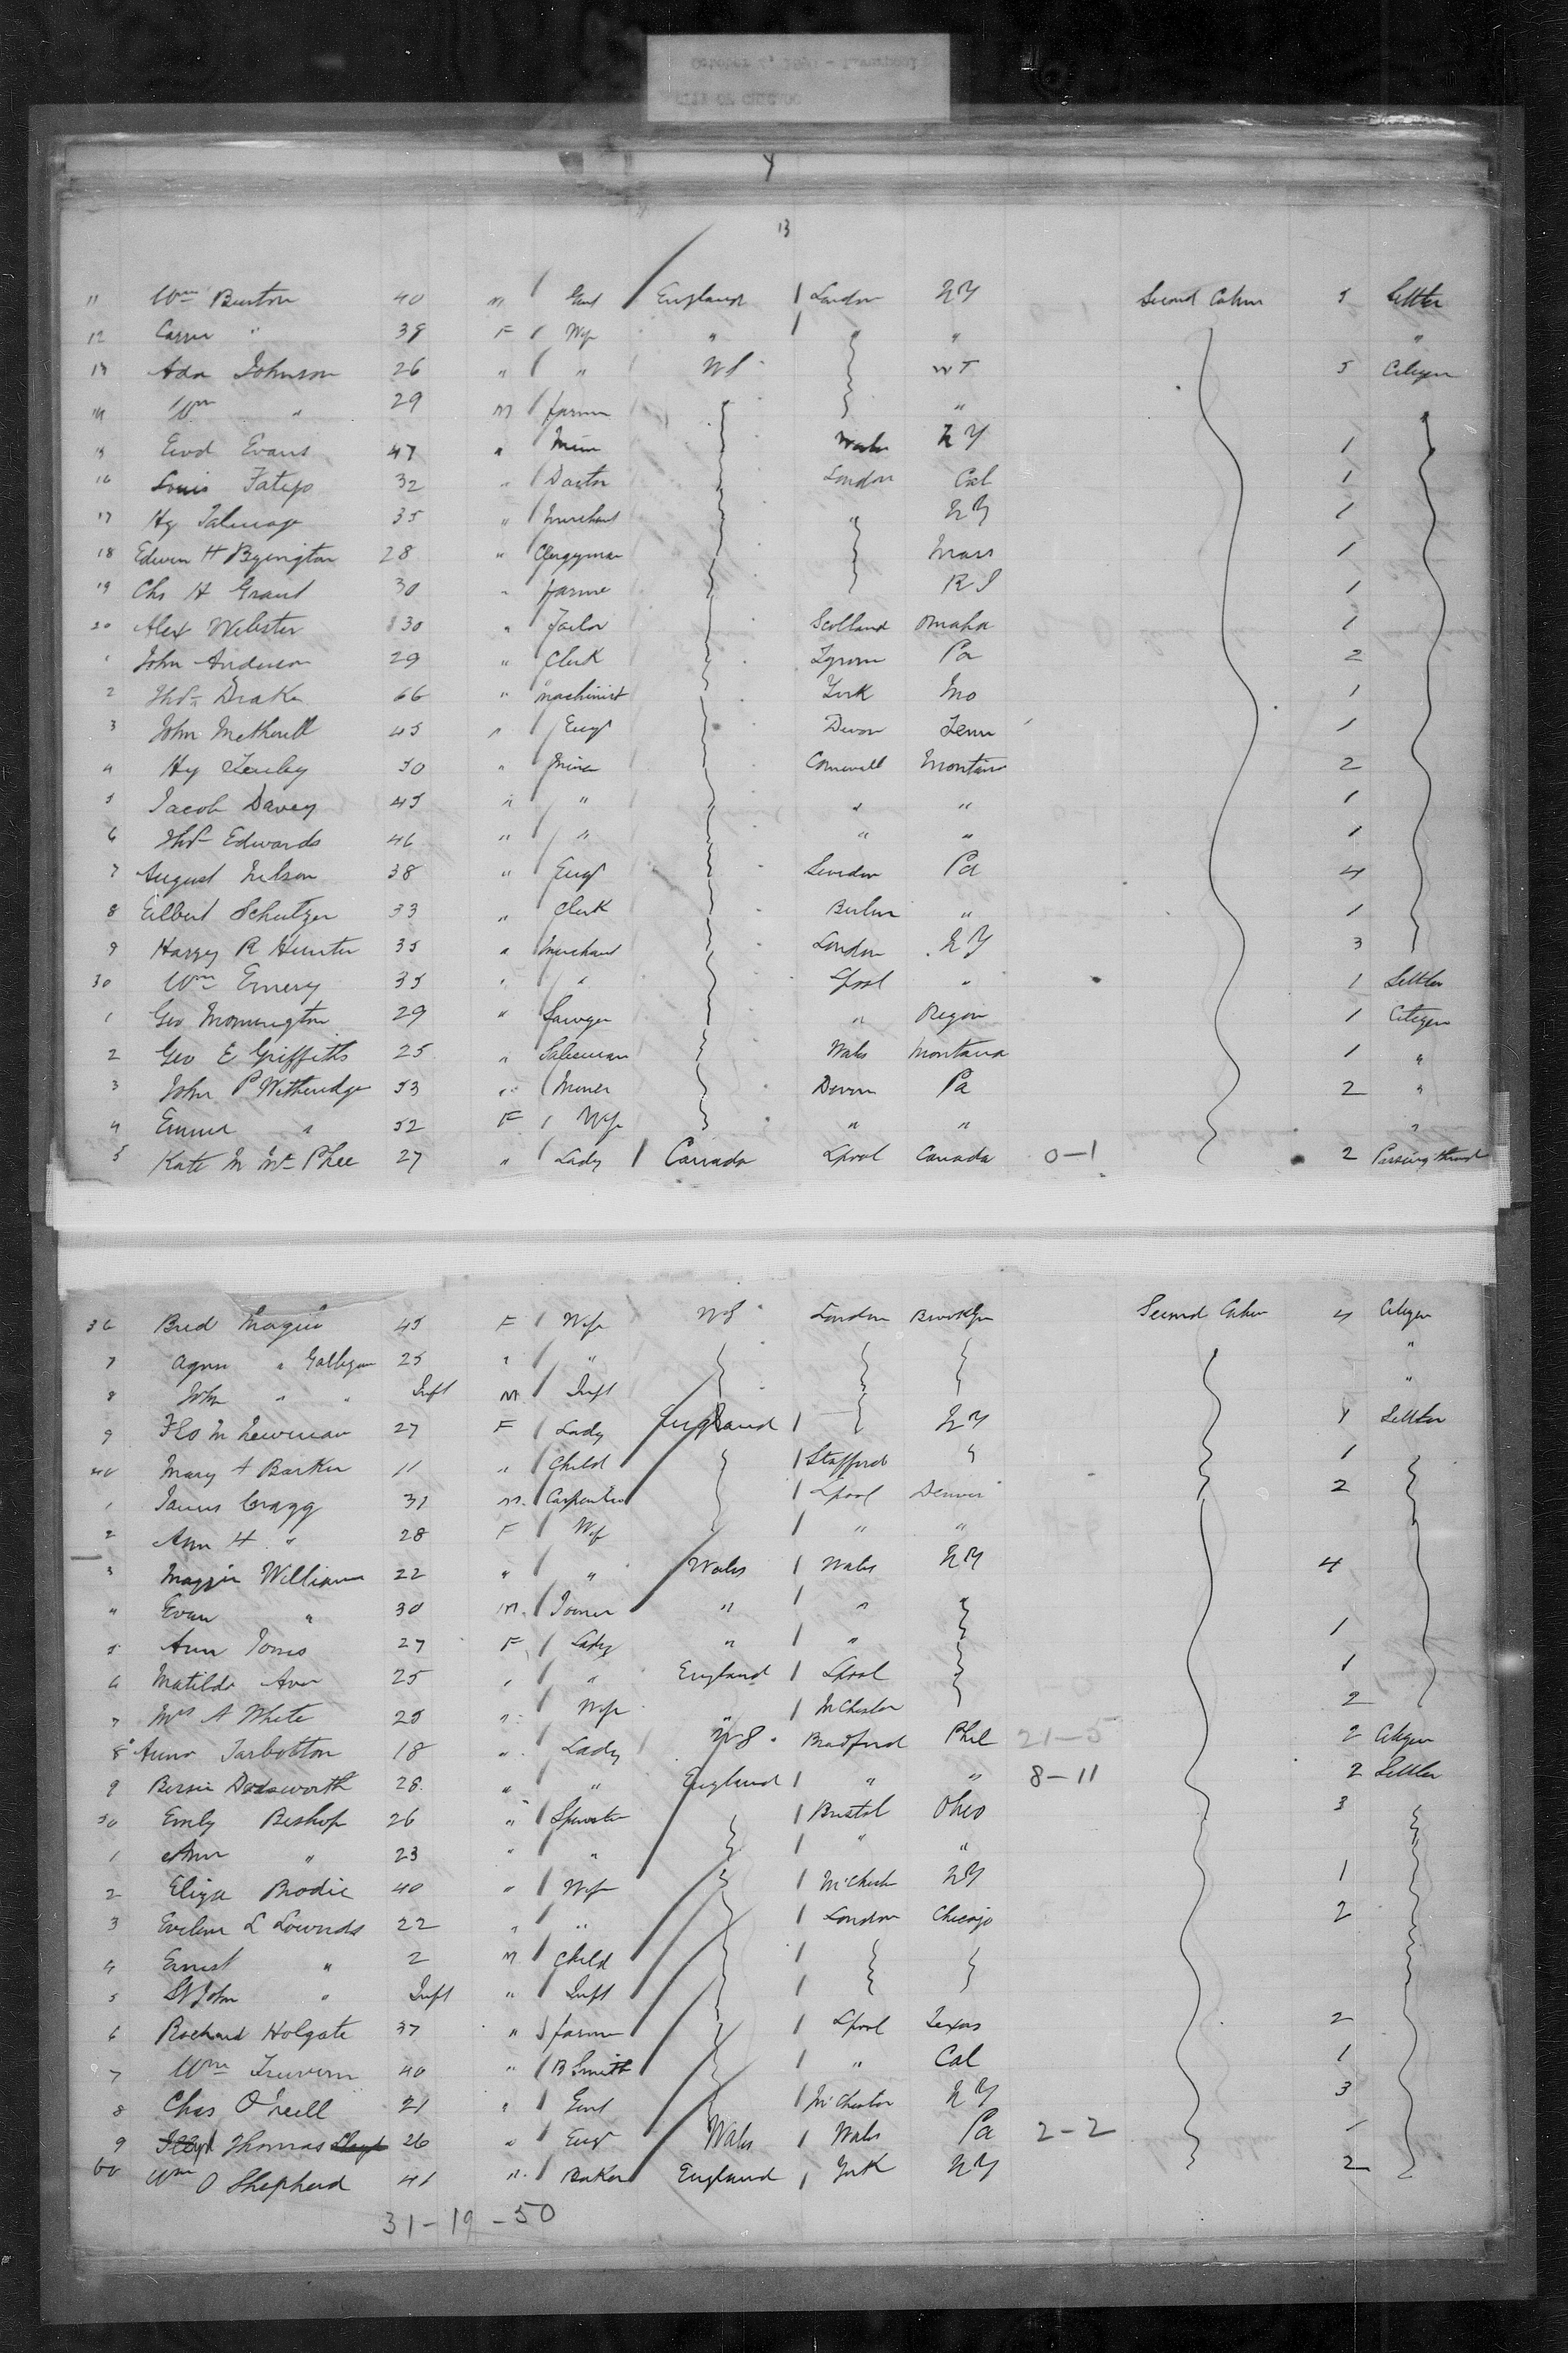 13
11 Wm Burton 40 m Gent England London NY Second Cabin 5 Settler
12 Carrie " 39 F Wife " " "
13 Ada Johnson 26 " " US WT 5 Citizen
14 Wm " 29 M farmer "
15 Evd Evans 47 " Miner Wales NY 1
16 Louis 32 " Doctor London Cal 1
17 Hy Talmage 35 " Merchant " NY 1
18 Edwin H Byington 28 " Clergyman Mass 1
19 Chs H Grant 30 " farmer R I 1
20 Alex Webster 30 " Tailor Scotland Omaha 1
1 John Anderson 29 " Clerk Tyrone Pa 2
2 Thos Drake 66 " Machinist York Mo 1
3 John Metherell 45 " Engr Devon Tenn 1
4 Hy 30 " Miner Cornwall Montana 2
5 Jacob Davey 45 " " " " 1
6 Thos Edwards 46 " " " " 1
7 August Nelson 38 " Engr Sweden Pa 4
8 Eilbert Schutzer 33 " Clerk Berlin " 1
9 Harry R Hunter 35 " Merchant London NY 3
30 Wm Emery 35 " " Lpool " 1 Settler
1 Geo Mornington 29 " Sawyer " Oregon 1 Citizen
2 Geo E Griffiths 25 " Salesman Wales Montana 1 "
3 John P Witheridge 53 " Miner Devon Pa 2 "
4 Emma " 52 F Wife " " "
5 Kate M McPhee 27 " Lady Canada Lpool Canada 0-1 2 Passing through
36 Brid Magee 45 F Wife US London Brooklyn Second Cabin 4 Citizen
7 Agnes " Galligan 25 " " "
8 John " " Inft M Inft "
9 Flo M Newman 27 F Lady England NY 1 Settler
40 Mary A Barker 11 " Child Stafford 1
1 James Cragg 31 M. Carpenter Lpool Denver 2
2 Ann H " 28 F Wife " "
3 Maggie Williams 22 " " Wales Wales NY 4
4 Evan " 30 M. Joiner " "
5 Ann Jones 27 F Lady " " 1
6 Matilda 25 " " England Lpool 1
7 Mrs A White 25 " Wife " McChester 2
8 Anna Tarbotton 18 " Lady US Bradford Phil 21-5 2 Citizen
9 Bessie Dodsworth 28 " " England " " 8-11 2 Settler
50 Emily Bishop 26 " Spinster Bristol Ohio 3
1 Ann " 23 " " " "
2 Eliza Brodie 40 " Wife McChester NY 1
3 Eveline L Lownds 22 " " London Chicago 2
4 Ernest " 2 M Child
5 St John " Inft " Inft
6 Richard Holgate 37 " farmer Lpool Texas 2
7 Wm 40 " B Smith " Cal 1
8 Chas O'Neill 21 " Gent McChester NY 3
9 Lloyd Thomas Lloyd 26 " Engr Wales Wales Pa 2-2 1
60 Wm O Shepherd 41 " Baker England York NY 2
31-19-50